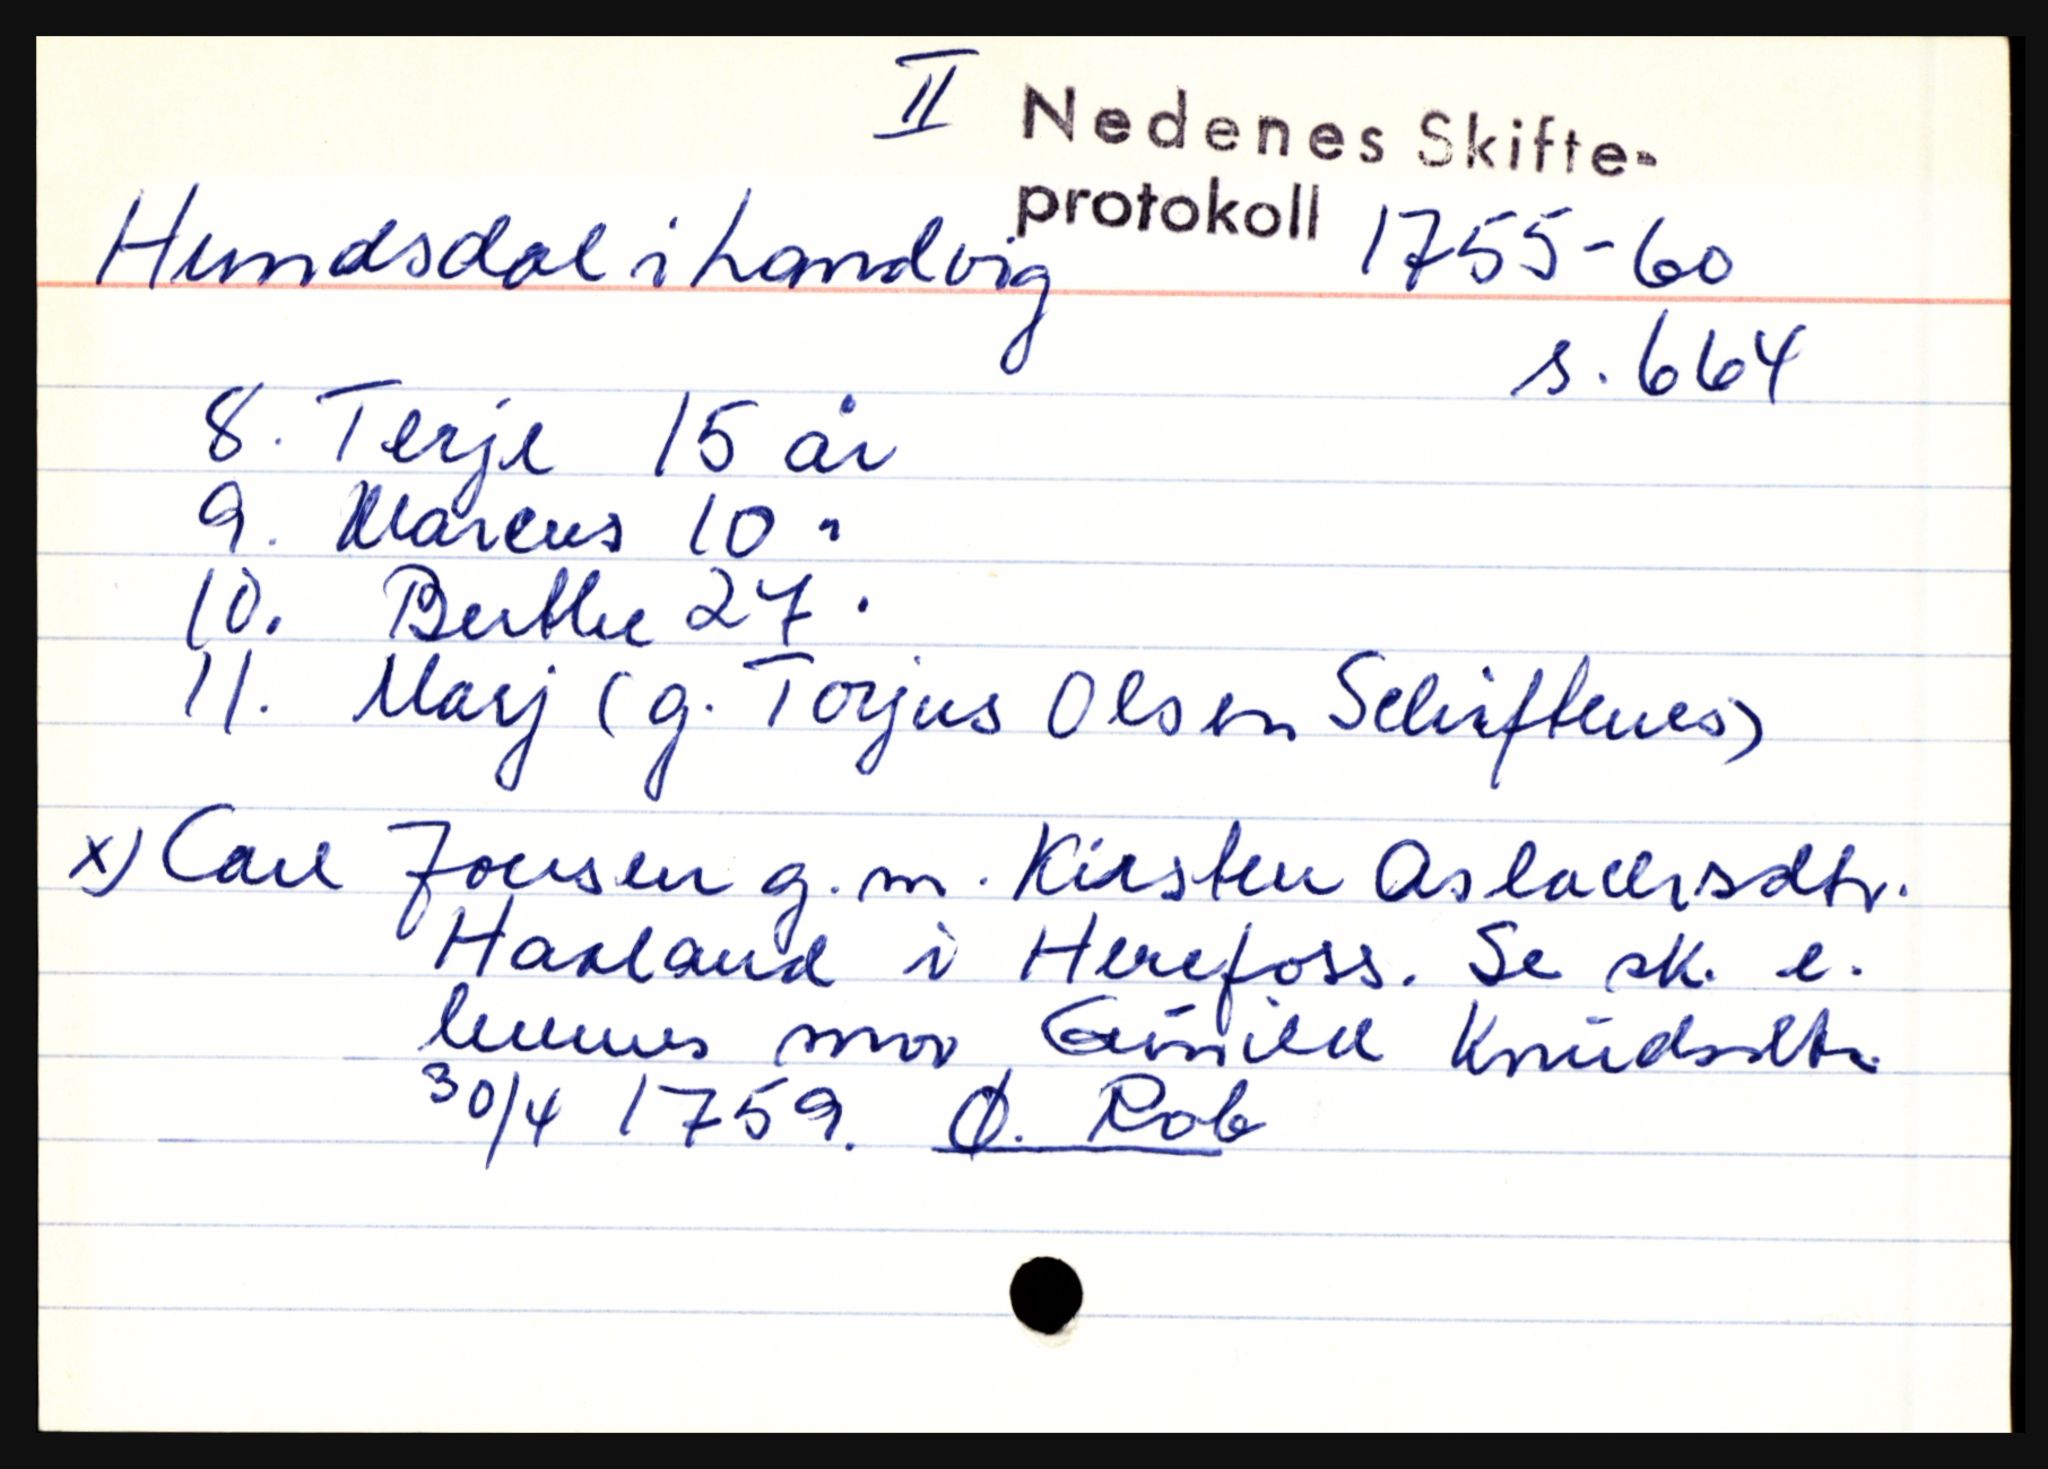 II Nedenes Skifte-
protokoll 1755-60
Hundsdal i Landvig
s. 664
8. Terje 15 år
9. Marcus 10 "
10. Berthe 27 "
11. Marj (g. Torjus Olsen Schiftenes)
x) Carl Jonsen g. m. Kirsten Aslachsdtr.
Haaland i Herefoss. Se sk. e.
hennes mor Gunild Knudsdtr.
30/4 1759. Ø. Rob